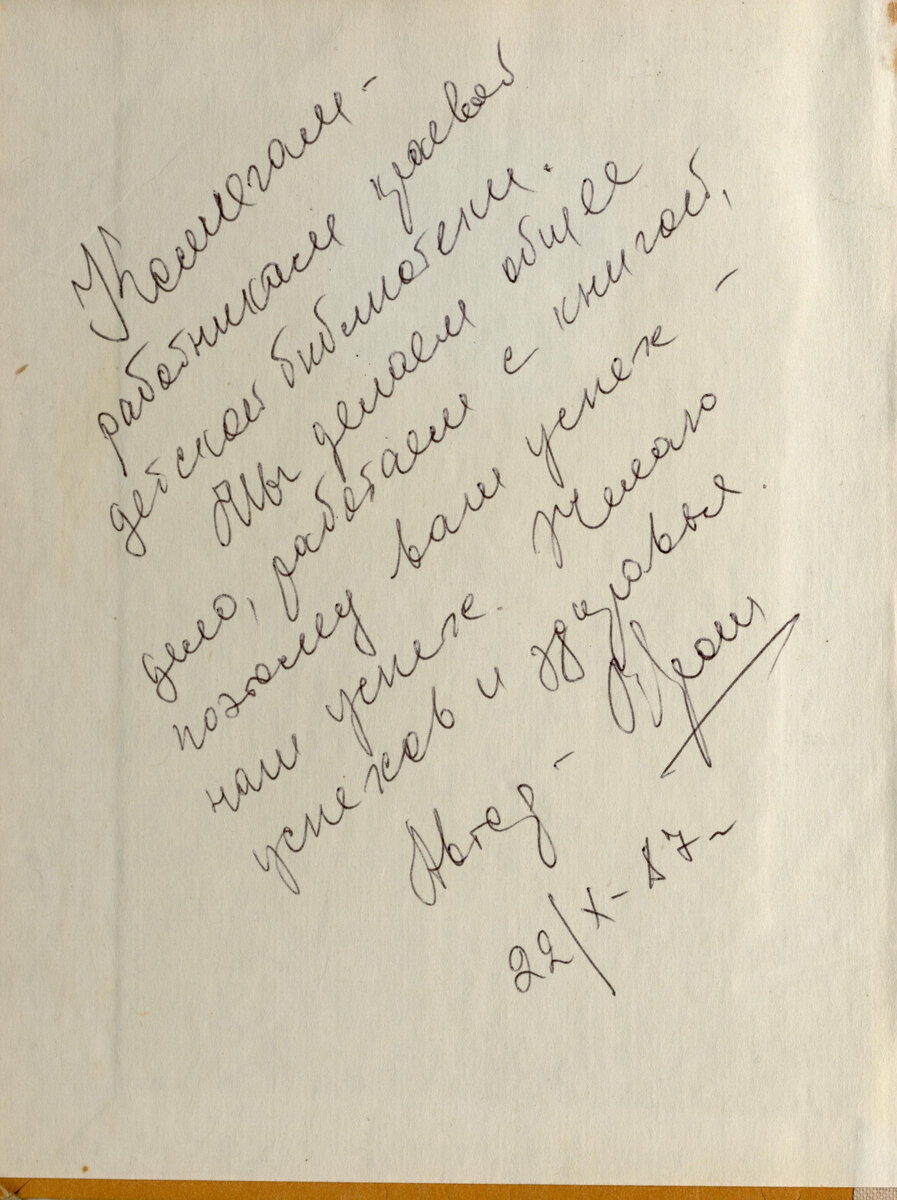 Коллегам -
работникам краевой
детской библиотеки.
Мы делаем общее
дело, работаем с книгой,
поэтому ваш успех -
наш успех. Желаю
успехов и здоровья.
Автор -
22/X-87 г